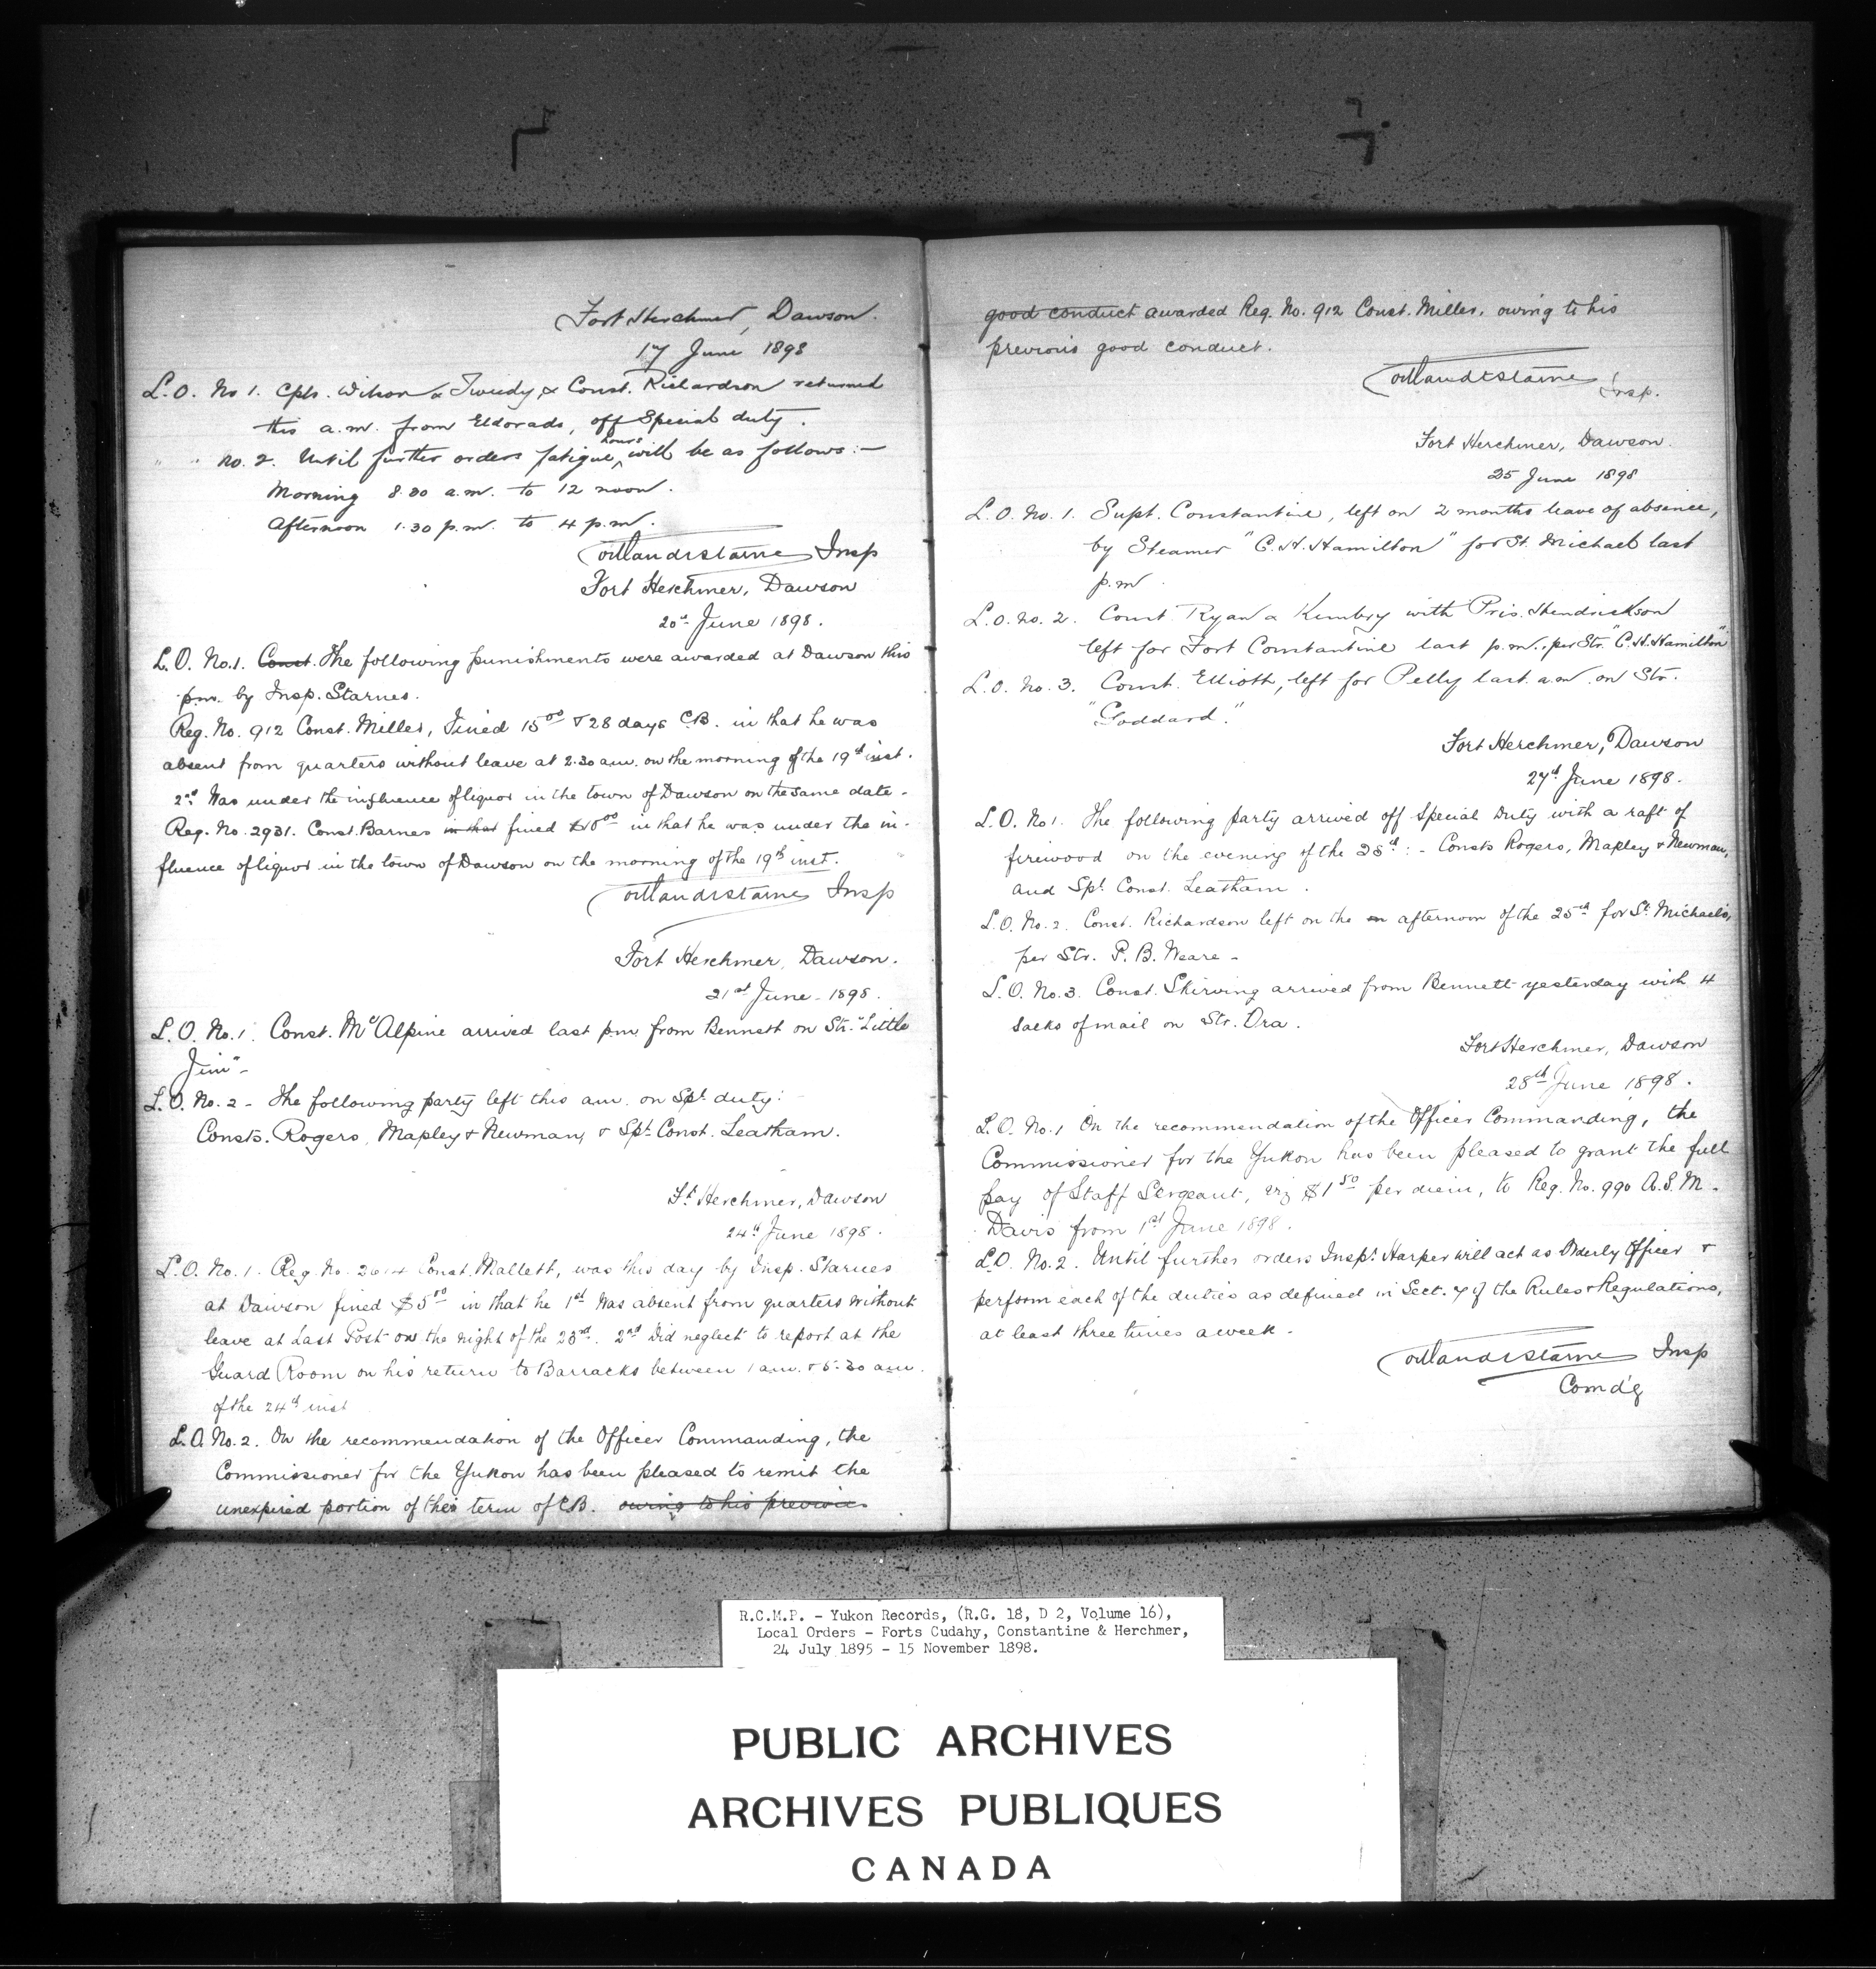 Fort Herchmer, Dawson.
17 June 1898
L.O. No 1. Cpls. Wilson & Tweedy, & Const. Richardson returned
this a.m. from Eldorado, off Special duty.
" " No. 2. Until further orders fatigue hours will be as follows:—
Morning 8.30 a.m. to 12 noon.
Afternoon 1.30 p.m. to 4 p.m.
Insp
Fort Herchmer, Dawson
20th June 1898.
L.O. No.1. Const. The following punishments were awarded at Dawson this
p.m. by Insp. Starnes.
Reg. No. 912 Const. Miller, Fined 15 00 & 28 days C.B. in that he was
absent from quarters without leave at 2.30 a.m. on the morning of the 19th inst.
2nd Was under the influence of liquor in the town of Dawson on the same date -
Reg. No. 2931. Const. Barnes in that fined in that he was under the in-
fluence of liquor in the town of Dawson on the morning of the 19th inst.
Insp
Fort Herchmer, Dawson.
21st June - 1898.
L.O. No.1. Const. McAlpine arrived last p.m. from Bennett on Str. "Little
Jim" -
L.O. No. 2 - The following party left this a.m. on Spl. duty:
Consts. Rogers, Mapley & Newman, & Spl. Const. Leatham.
Ft. Herchmer, Dawson
24th June 1898.
L.O. No. 1. Reg. No. Const. Mallett, was this day by Insp. Starnes
at Dawson fined $5 00 in that he 1st Was absent from quarters without
leave at Last Post on the night of the 23rd. 2nd Did neglect to report at the
Guard Room on his return to Barracks between 1 a.m. & 5.30 a.m.
of the 24th inst
L.O. No. 2. On the recommendation of the Officer Commanding, the
Commissioner for the Yukon has been pleased to remit the
unexpired portion of the term of C.B. owing to his previous
good conduct awarded Reg. No. 912 Const. Miller, owing to his
previous good conduct.
Insp.
Fort Herchmer, Dawson.
25 June 1898
L.O. No. 1. Supt. Constantine, left on 2 months leave of absence,
by Steamer "C.H. Hamilton" for St. Michael last
p.m.
L.O. No. 2. Const. Ryan & with Pris. Hendrickson
left for Fort Constantine last p.m., per Str. "C.H. Hamilton"
L.O. No. 3. Const. Elliott, left for Pelly last a.m. on Str.
"Goddard."
Fort Herchmer, Dawson
27th June 1898.
L.O. No 1. The following party arrived off Special Duty with a raft of
firewood on the evening of the 25th: - Consts Rogers, Mapley & Newman,
and Spl. Const. Leatham.
L.O. No. 2. Const. Richardson left on the afternoon of the 25th for St. Michaels,
per Str. P. B. Weare -
L.O. No. 3. Const. Skirving arrived from Bennett yesterday with 4
sacks of mail on Str. Ora.
Fort Herchmer, Dawson
28th June 1898.
L.O. No. 1 On the recommendation of the Officer Commanding, the
Commissioner for the Yukon has been pleased to grant the full
pay of Staff Sergeant, viz $1 50 per diem, to Reg. No. 990 A.S.M.
Davis from 1st June 1898.
L.O. No. 2. Until further orders Inspr. Harper will act as Orderly Officer &
perform each of the duties as defined in Sect. 7 of the Rules & Regulations,
at least three times a week -
Insp
Comd'g
R.C.M.P. - Yukon Records, (R.G. 18, D 2, Volume 16),
Local Orders - Forts Cudahy, Constantine & Herchmer,
24 July 1895 - 15 November 1898.
PUBLIC ARCHIVES
ARCHIVES PUBLIQUES
CANADA